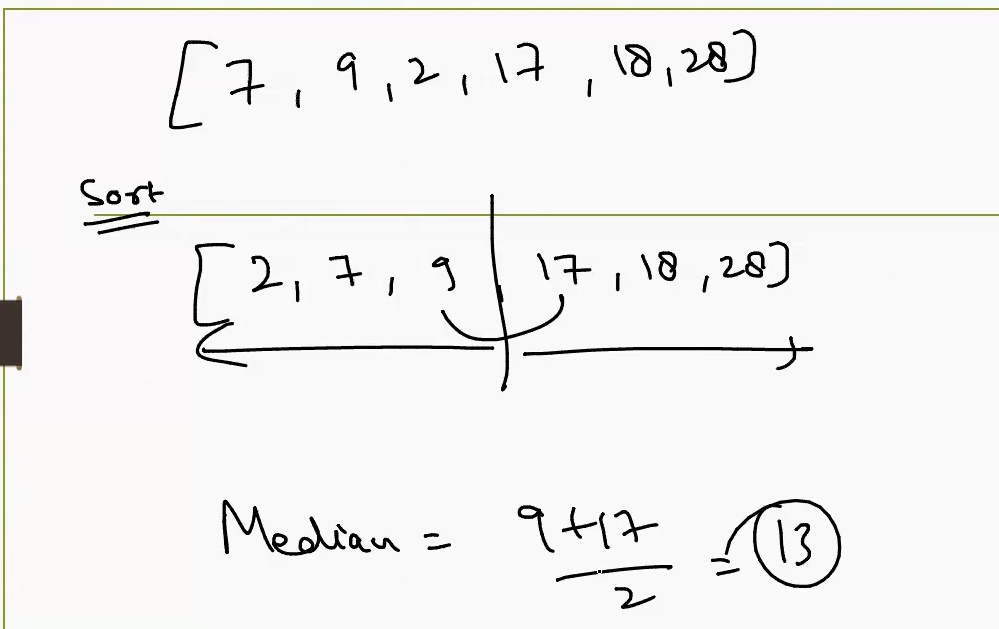 [7, 9, 2, 17, 18, 28]
Sort
[2, 7, 9 | 17, 18, 28]
Median = 9+17/2 = 13